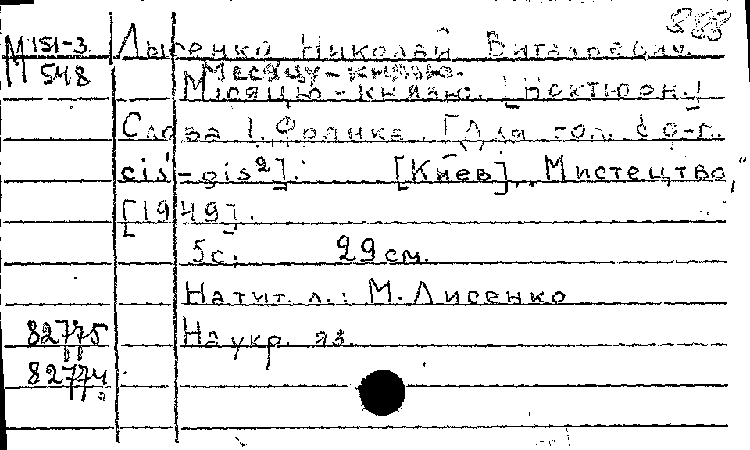 888
М 151-3 Лысенко Николай Витальевич.
М 548 Месяцу-князю.
Місяцю-князю. [Ноктюрн.]
Слова І. Франка. [Для гол. с ф-п.
cis¹-gis²]. [Киев], „Мистецтво,"
[1949].
5с. 29см.
На тит. л.: М. Лисенко
82775 На укр. яз.
82774